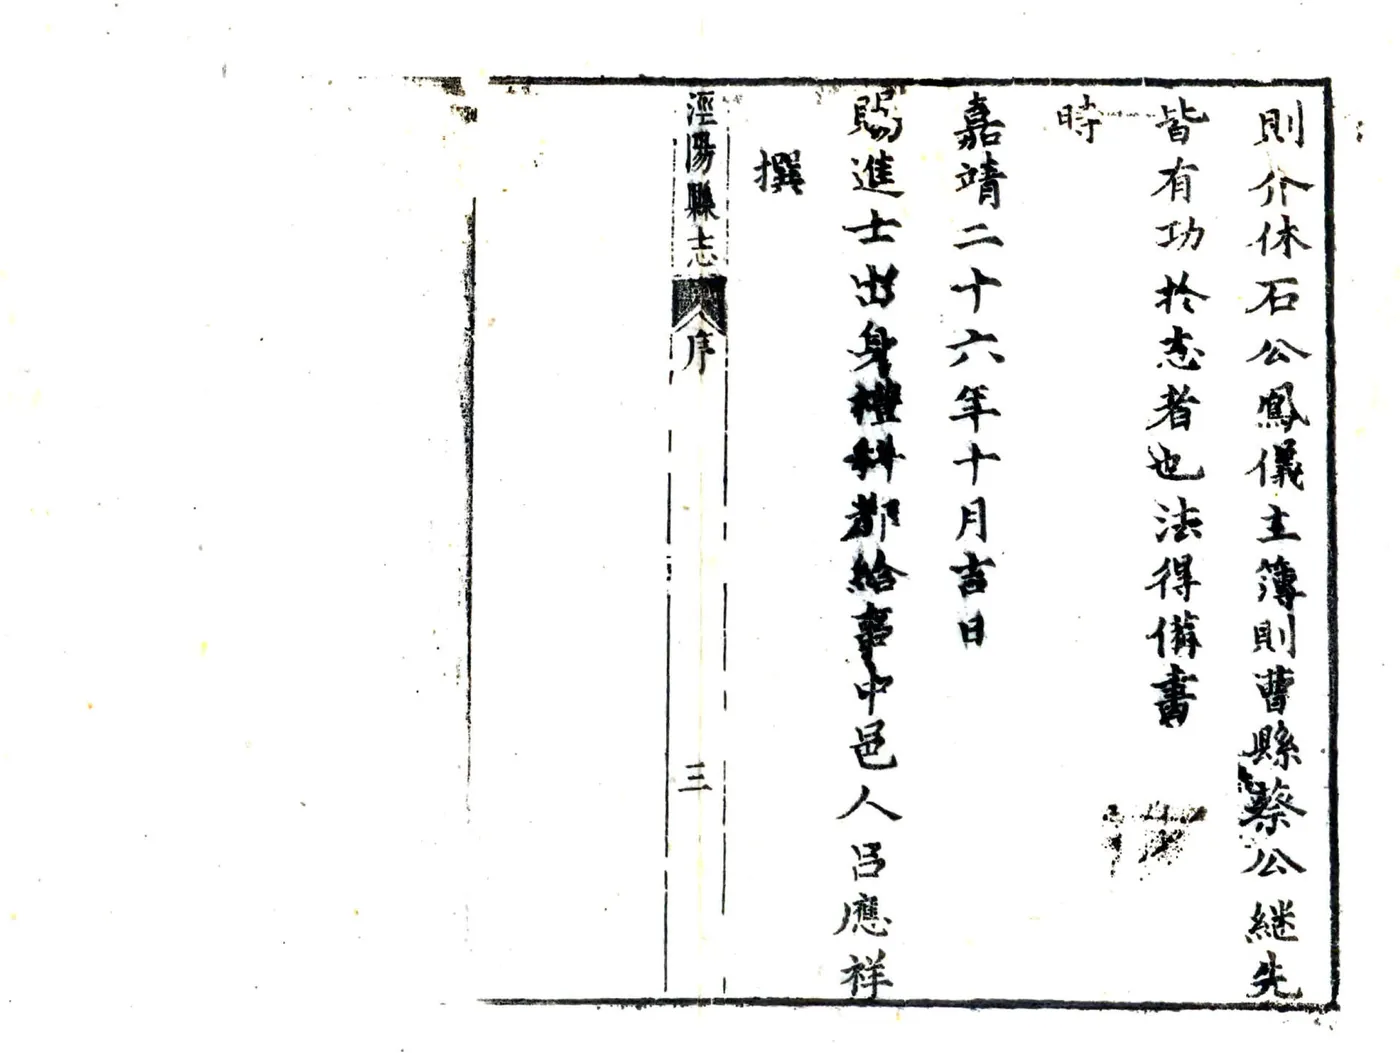 則介休石公鳳儀主簿則曹縣蔡公継先
皆有功於志者也法得備書
時
嘉靖二十六年十月吉日
賜進士出身禮科都給事中邑人呂應祥
撰
涇陽縣志 序 三